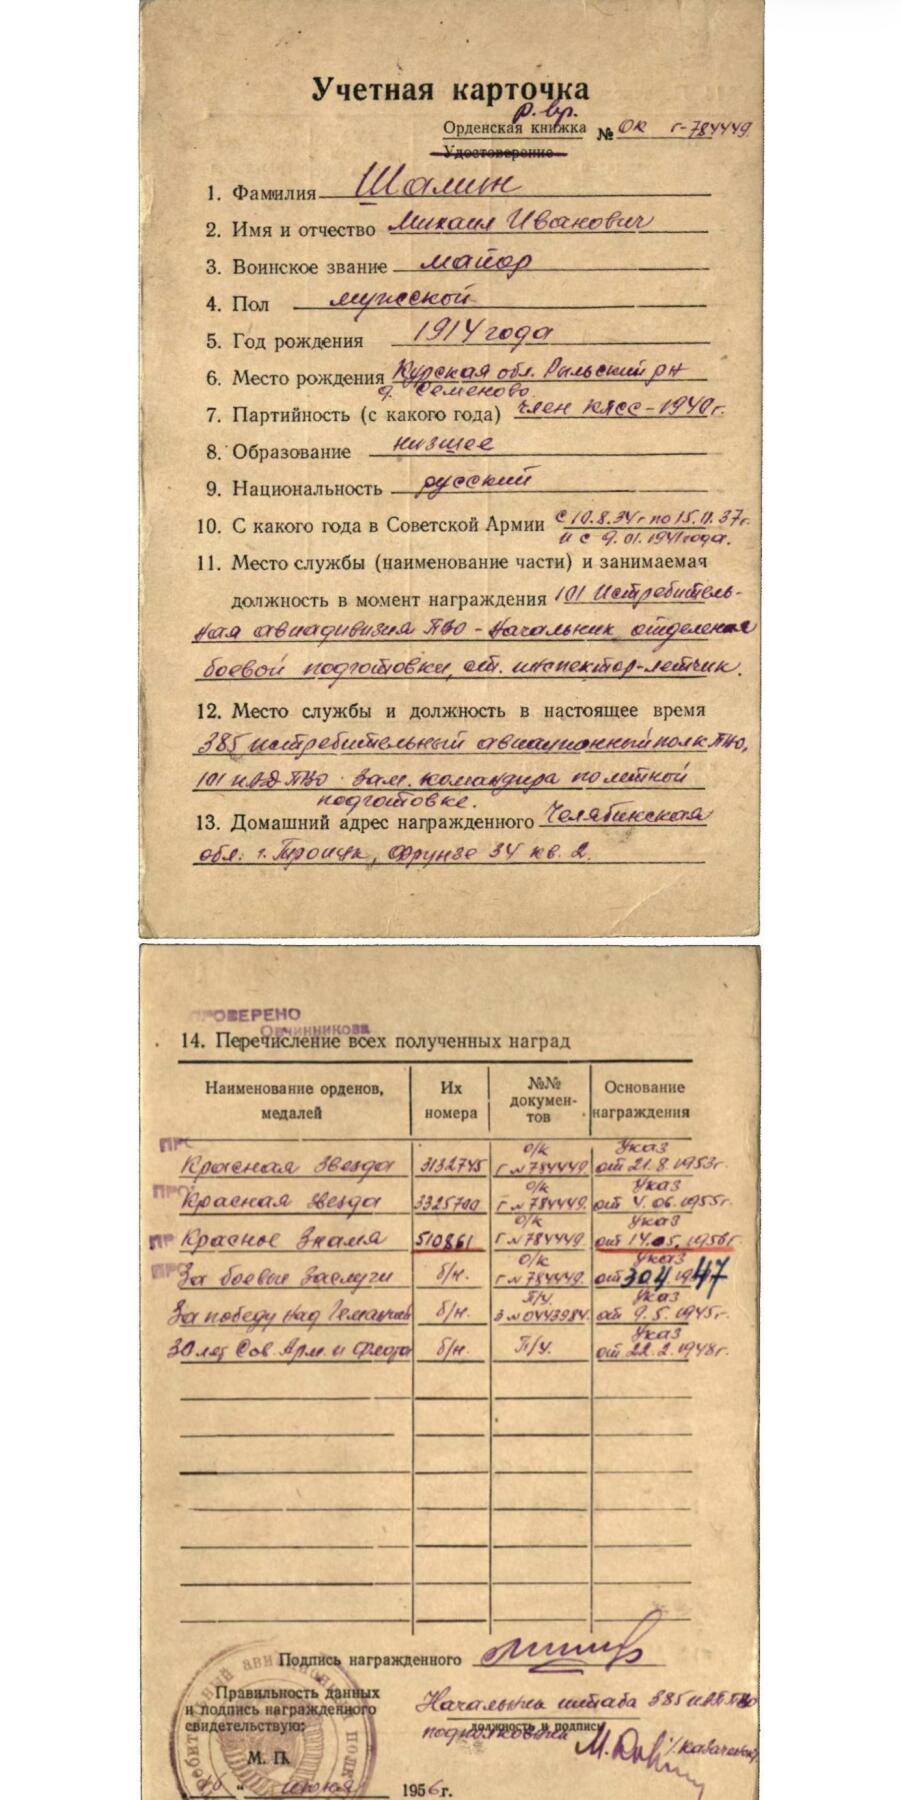 Учетная карточка
р. вр.
Орденская книжка № ОК Г-784449
Удостоверение
1. Фамилия Шалин
2. Имя и отчество Михаил Иванович
3. Воинское звание майор
4. Пол мужской
5. Год рождения 1914 года
6. Место рождения Курская обл. Рыльский рн
д. Семеново
7. Партийность (с какого года) член КПСС-1940г.
8. Образование низшее
9. Национальность русский
10. С какого года в Советской Армии с 10.8.34г по 15.11.37г.
и с 9.01.1941года.
11. Место службы (наименование части) и занимаемая
должность в момент награждения 101 Истребитель-
ная авиадивизия ПВО - Начальник отделения
боевой подготовки, ст. инспектор-летчик.
12. Место службы и должность в настоящее время
385 истребительный авиационный полк ПВО,
101 ИАД ПВО Зам. командира по летной
подготовке.
13. Домашний адрес награжденного Челябинская
обл. г. Троицк, Фрунзе 34 кв. 2.
ПРОВЕРЕНО
Овчинникова
14. Перечисление всех полученных наград
Наименование орденов, медалей Их номера №№ докумен-тов Основание награждения
Красная Звезда 3132745 о/к Г № 784449 Указ от 21.8.1953г.
Красная Звезда о/к Г № 784449 Указ от 4.06.1955г.
Красное Знамя 510861 о/к Г № 784449 Указ от 14.05.1956г
За боевые заслуги б/н. о/к Г № 784449 Указ от 30 4 1947
За победу над Германией б/н. П/У. З № 0443984 Указ от 9.5.1945г.
30 лет Сов. Арм. и Флота б/н. П/У. Указ от 22.2.1948г.
Подпись награжденного
Правильность данных
и подпись награжденного
свидетельствую:
Начальник штаба 385 ИАП ПВО
должность и подпись
подполковник
М. П.
июня 1956г.